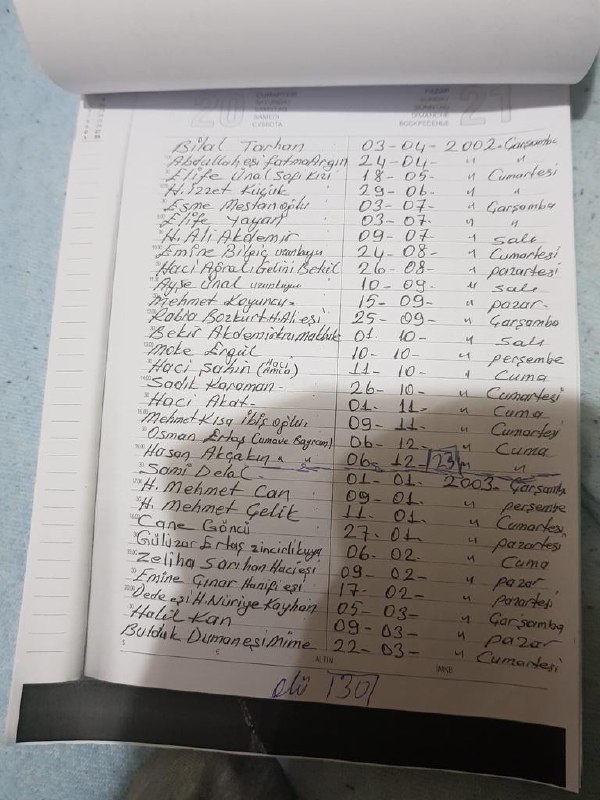 20 CUMARTESİ SATURDAY SAMSTAG SAMEDI СУББОТА
PAZAR SUNDAY SONNTAG DIMANCHE ВОСКРЕСЕНЬЕ 21
Bilal Tarhan 03-04-2002-Çarşamba
Abdullah eşi fatma Argın 24-04- " "
Elife Ünal Safi Kızı 18-05- " Cumartesi
H. İzzet Küçük 29-06- " "
Esme Mestanoğlu 03-07- " Çarşamba
Elife Yayan 03-07- " "
H. Ali Akdemir 09-07- " salı
Emine Bilgiç uzunkuyu 24-08- " Cumartesi
Haci Ağralı Gelini Betül 26-08- " pazartesi
Ayşe Ünal uzunkuyu 10-09- " salı
Mehmet Koyuncu- 15-09- " pazar-
Rabia Bozkurt H. Ali eşi 25-09- " Çarşamba
Bekir Akdemir 01.10- " Salı
Möke Ergül 10-10- " perşembe
Haci Şahin (Haci Amca) 11-10- " Cuma
Sadık Karaman- 26-10- " Cumartesi
Haci Akat- 01-11- " Cuma
Mehmet Kısa ibiş oğlu 09-11- " Cumartesi
Osman Ertaş (Cuma ve Bayram) 06-12- " Cuma
Hasan Akçakın " " 06-12- 23 " "
Sami Delal- 01-01-2003-Çarşamba
H. Mehmet Can 09-01- " perşembe
H. Mehmet Çelik 11-01- " Cumartesi
Cane Göncü 27-01- " pazartesi
Gülüzar Ertaş zincirlikuyu 06-02- " Cuma
Zeliha Sarıhan Haci eşi 09-02- " pazar
Emine Çınar Hanifi eşi 17-02- " Pazartesi
Dede eşi H. Nüriye Kayhan 05-03- " Çarşamba
Halil Kan 09-03- " pazar
Bulduk Duman eşi Mime 22-03- " Cumartesi
ALTIN İMKB
ölü 30